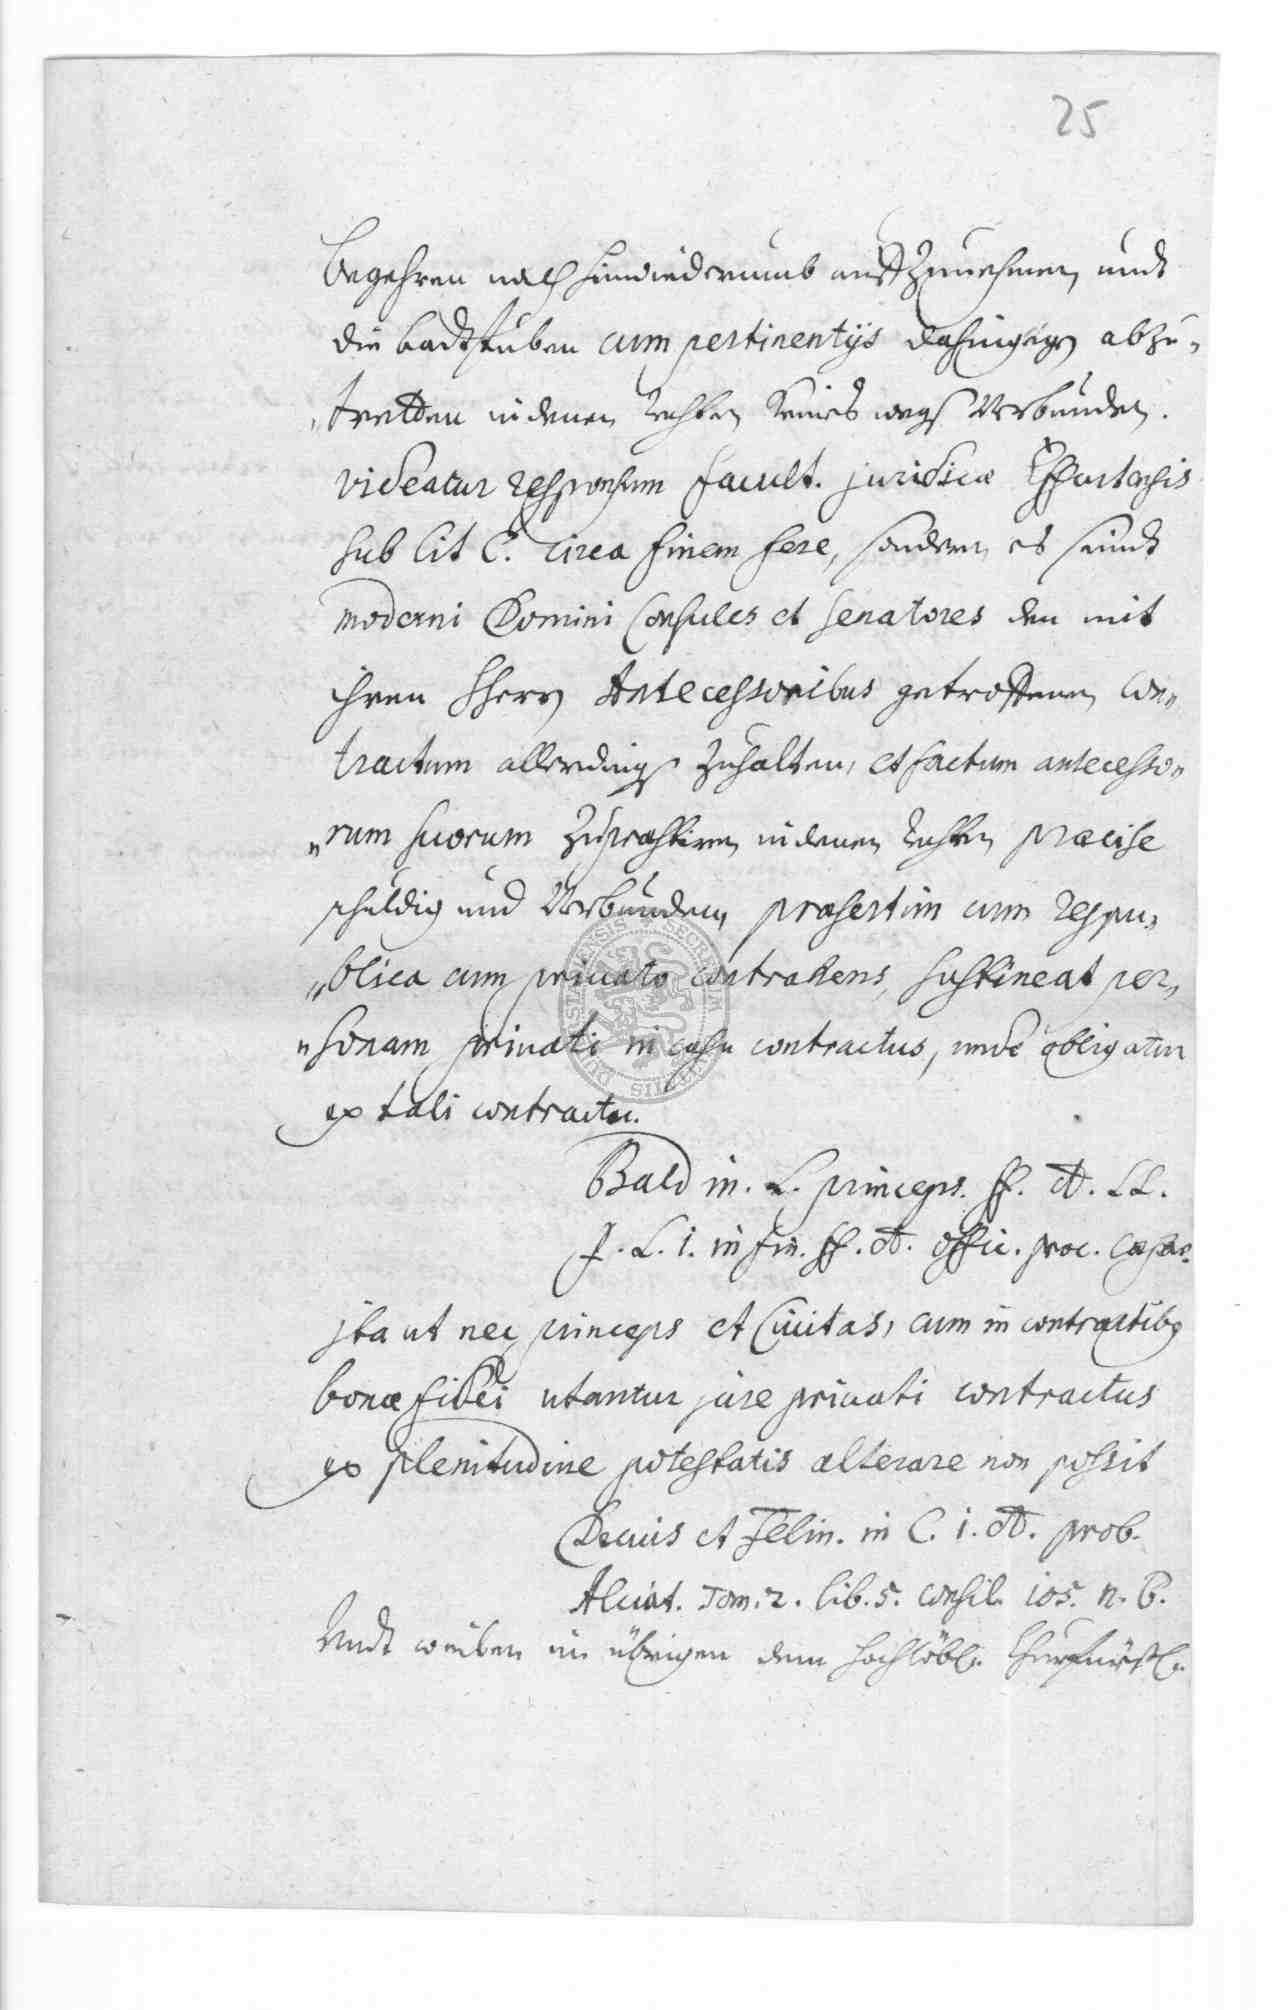 25
begehren nach hinwiederumb auffzunehmen, undt
die badtstuben cum pertinentijs dahingegen abzu„
„tretten in denen rechten keines wegs verbunden.
videatur responsum facult. juridicæ Erffurtensis
sub lit C. circa finem fere, sondern es seindt
moderni Domini Consules et Senatores den mit
ihren Herrn Antecessoribus getroffenen Con„
tractum allerdings zuhalten, et factum antecesso„
„rum suorum zu præstiren, in denen rechten præcise
schuldig und verbunden, præsertim cum respu„
„blica cum privato contrahens, sustineat per„
„sonam privati in casu contractus, unde obligatur
ex tali contractu.
Bald in. L. princeps. ff. d. LL.
J. L. i. in fin. ff. d. offic. proc. Cæsar.
jta ut nec princeps et Civitas, cum in contractibg
bonæ fidei utantur jure privati contractus
ex plenitudine potestatis alterare non possit
Decius et Felin. in C. i. d. prob.
Alciat. Tom. 2. lib. 5. consil. 105. n. 6.
Undt im übrigen dem hochlöbl. Churfürstl.
SECRETUM